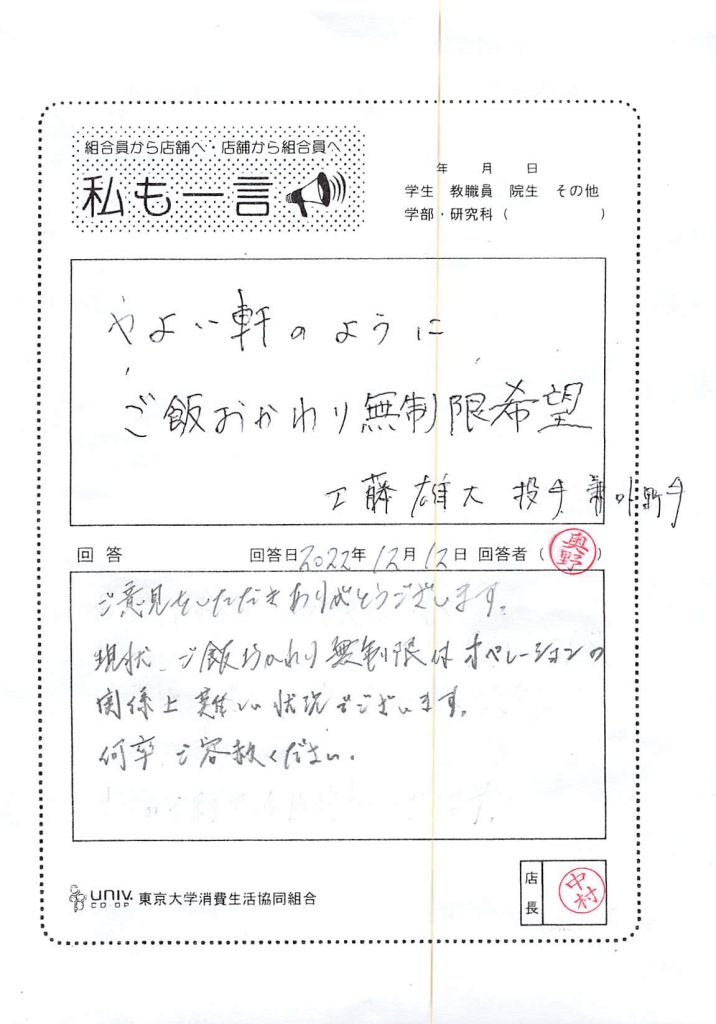 組合員から店舗へ・店舗から組合員へ
私も一言
年 月 日
学生 教職員 院生 その他
学部・研究科（ ）
やよい軒のように
ご飯おかわり無制限希望
工藤雄大 投手 兼 外野手
回答 回答日2022年12月12日 回答者（奥野）
ご意見をいただきありがとうございます。
現状、ご飯おかわり無制限はオペレーションの
関係上難しい状況でございます。
何卒ご容赦ください。
UNIV. CO-OP 東京大学消費生活協同組合
店長 中村